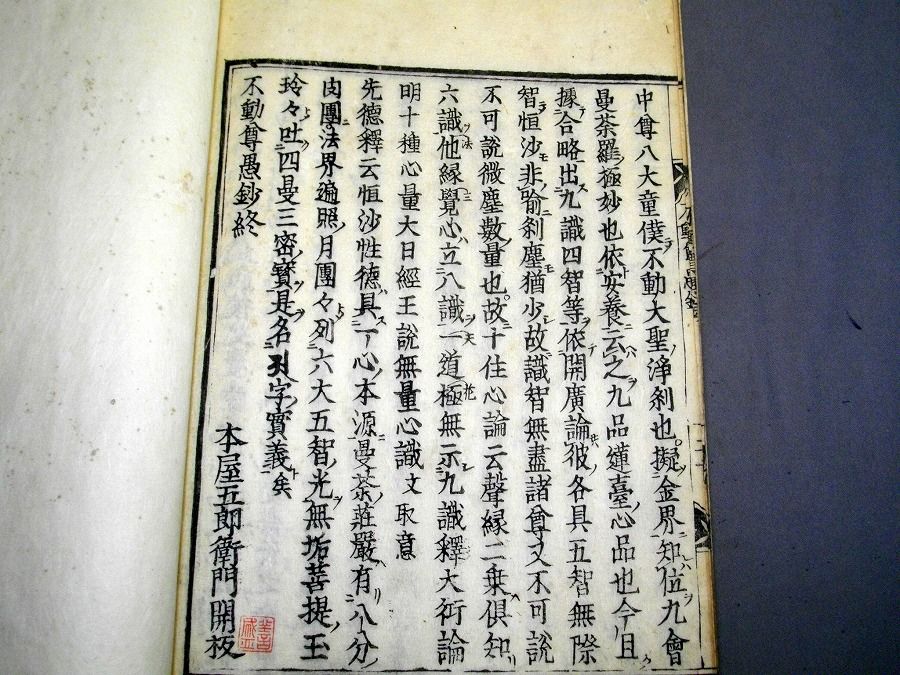 中尊八大童僕不動大聖淨刹也擬金界知位九會
曼荼羅極妙也依安養云之九品蓮臺心品也今且
據合略出九識四智等依開廣論彼各具五智無際
智恒沙非喩刹塵猶少故識智無盡諸尊又不可説
不可説微塵數量也故十住心論云聲縁二乗倶知
六識他縁覺心立八識一道極無示九識釋大衍論
明十種心量大日經王説無量心識文取意
先徳釋云恒沙性徳具一心本源曼荼莊嚴有八分
肉團法界遍照月團々列六大五智光無垢菩提玉
玲々吐四曼三密寶是名字寶義矣
不動尊愚鈔終
本屋五郎衛門開板